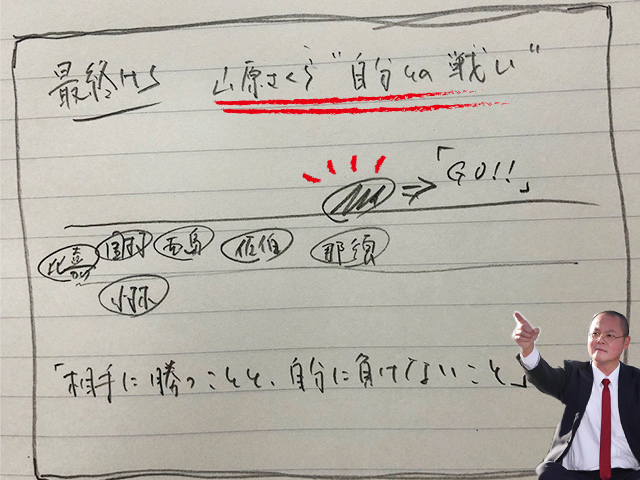 最終HS 山原さくら"自分との戦い"
⇒「GO!!」
比嘉 岡村 西島 佐伯 那須
「相手に勝つことと、自分に負けないこと」